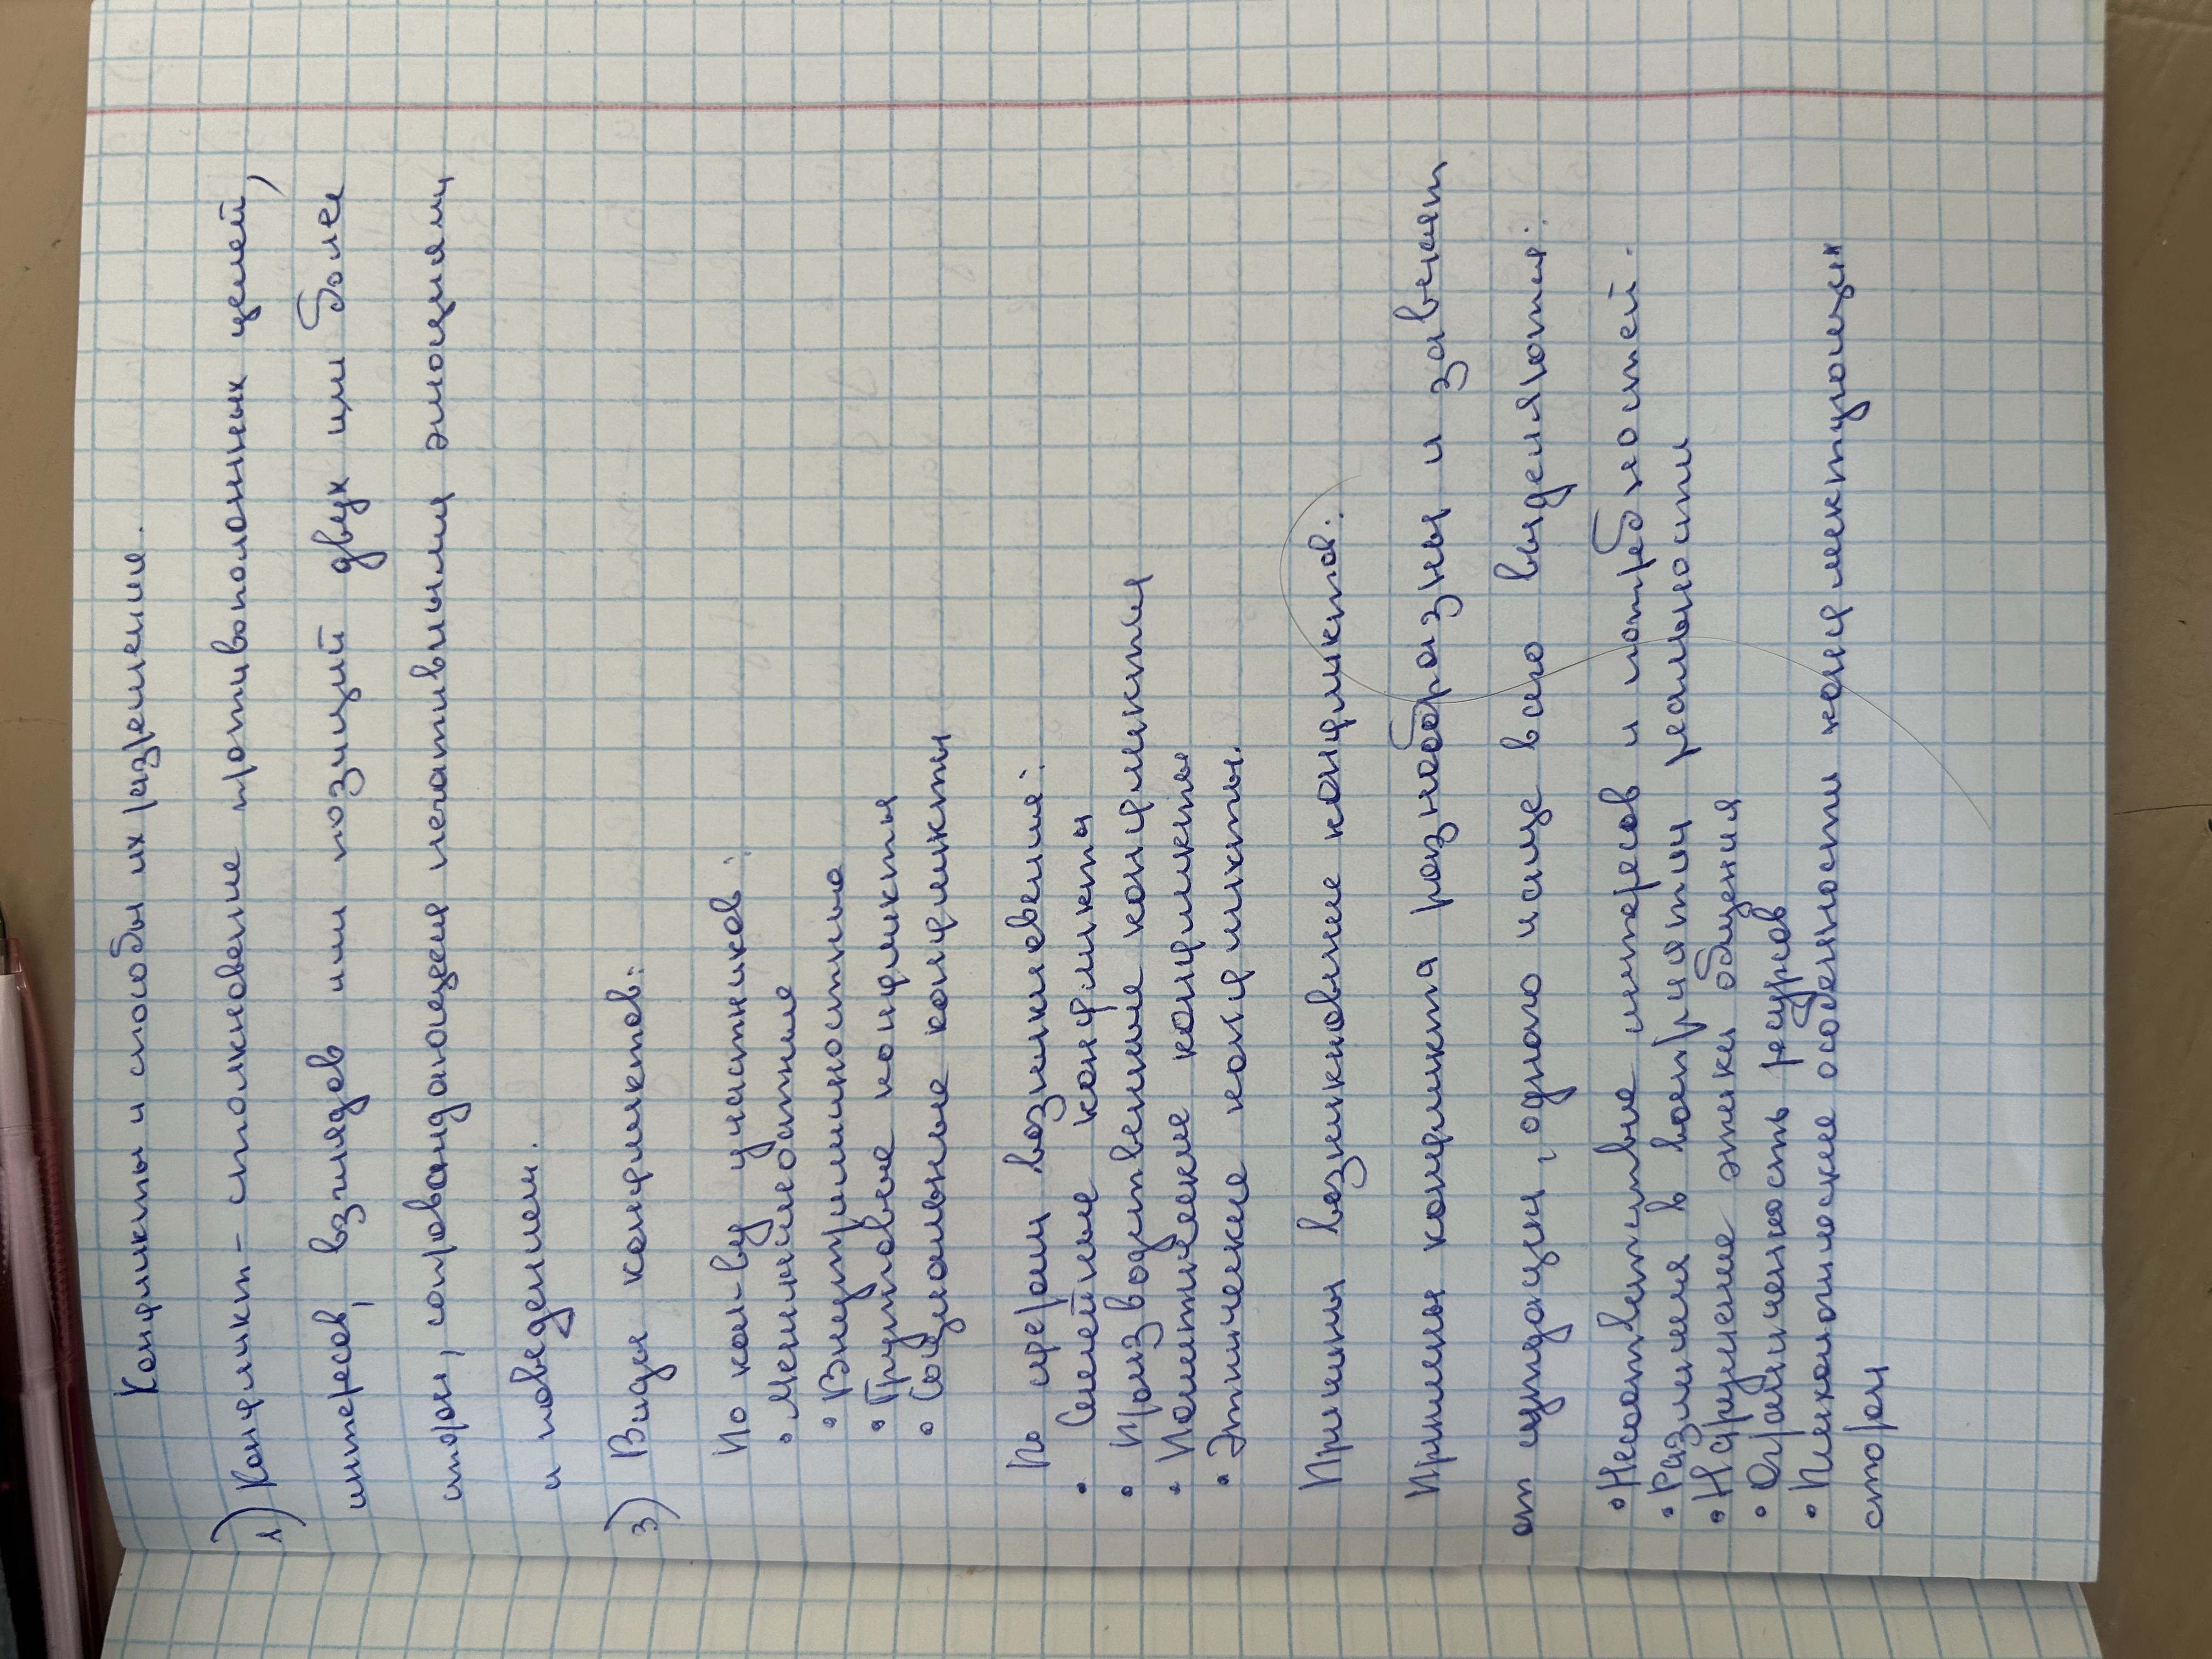 Конфликты и способы их разрешение.
1) Конфликт - столкновение противоположных целей,
интересов, взглядов или позиций двух или более
сторон, сопровождающееся негативными эмоциями
и поведением.
3) Виды конфликтов:
По кол-ву участников:
• Межличностные
• Внутриличностные
• Групповые конфликты
• Социальные конфликты
По сферам возникновения:
• Семейные конфликты
• Производственные конфликты
• Политические конфликты
• Этнические конфликты.
Причины возникновение конфликтов:
Причины конфликта разнообразны и зависят
от ситуации, однако чаще всего выделяются:
• Несоответствие интересов и потребностей.
• Различия в восприятии реальности
• Нарушение этики общения
• Ограниченность ресурсов
• Психологические особенности конфликтующих
сторон